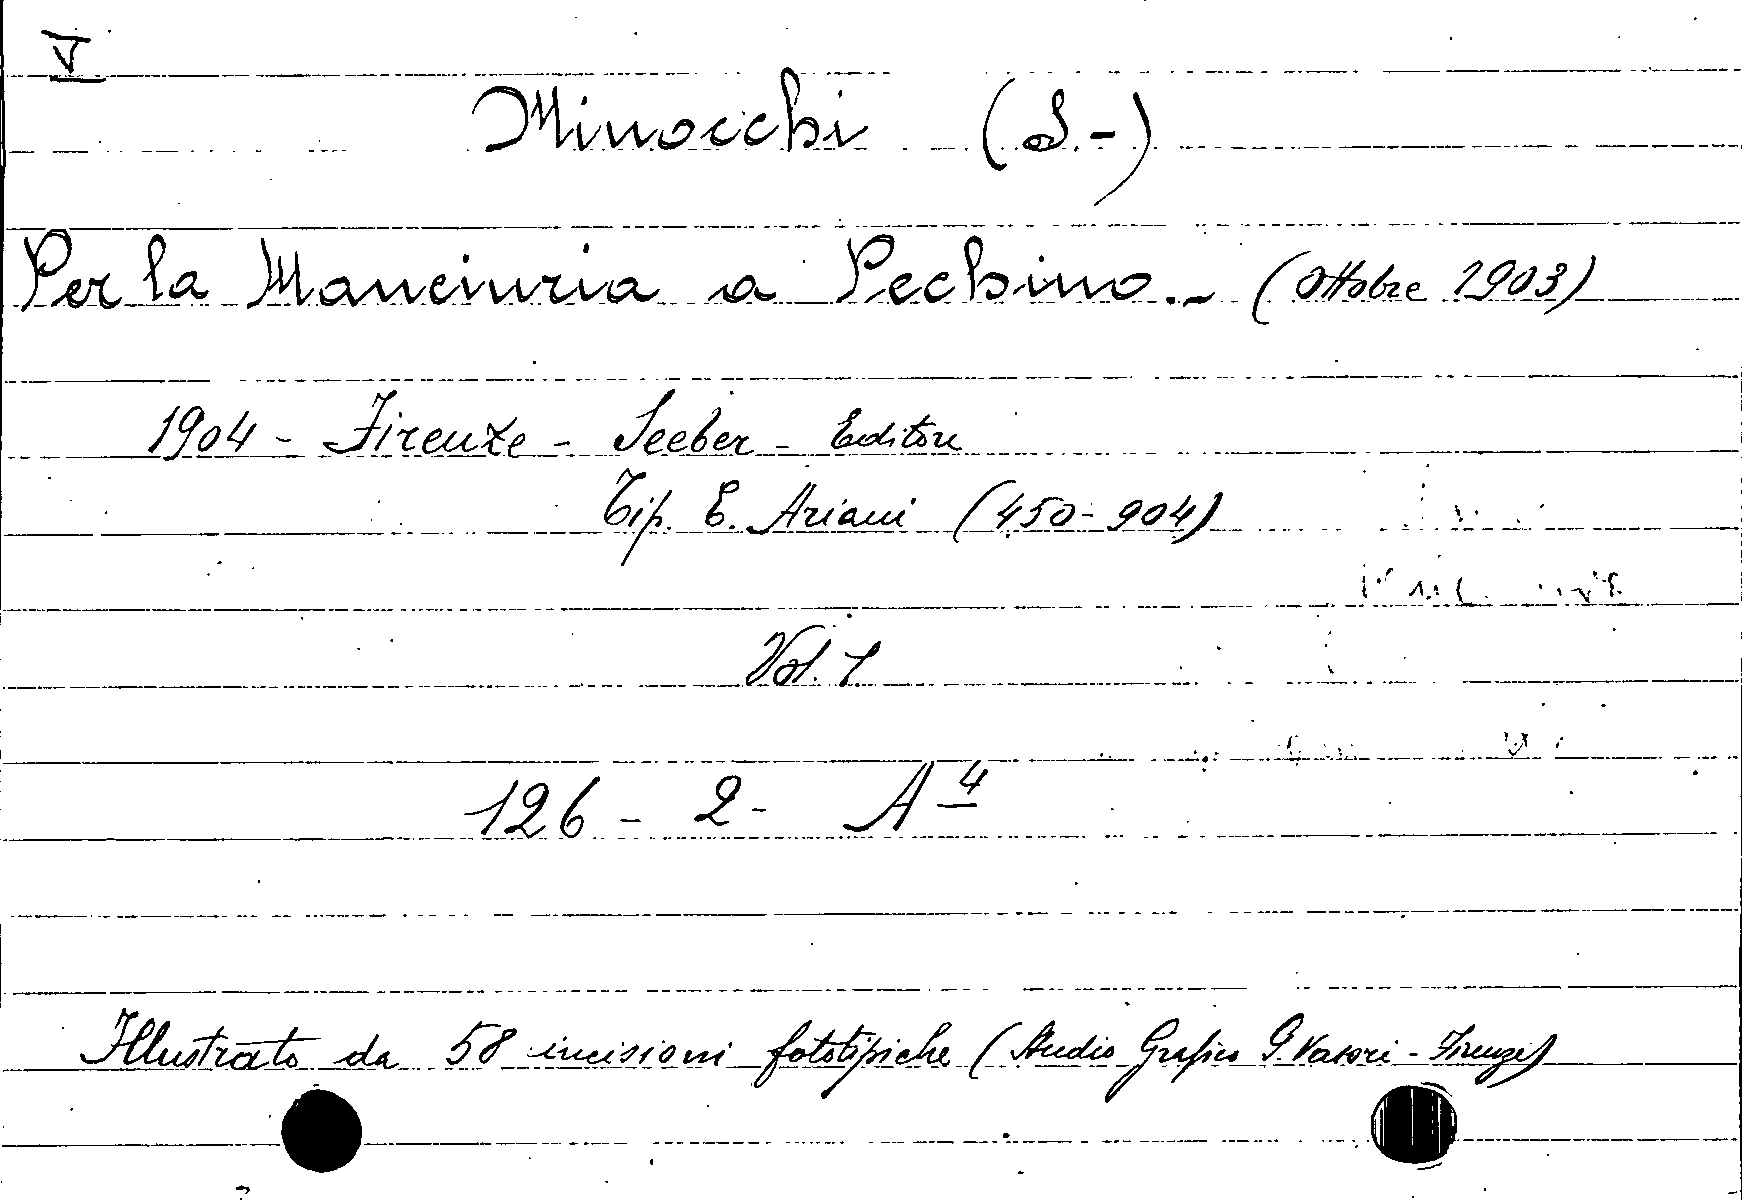 V
Minocchi (S.-)
Per la Manciuria a Pechino.- (Ottobre 1903)
1904 - Firenze - Seeber - Editore
Tip. E. Ariani (450-904)
Vol. 1
126 - 2 - A 4
Illustrato da 58 incisioni fototipiche (Studio Grafico G. Vasori - Firenze)